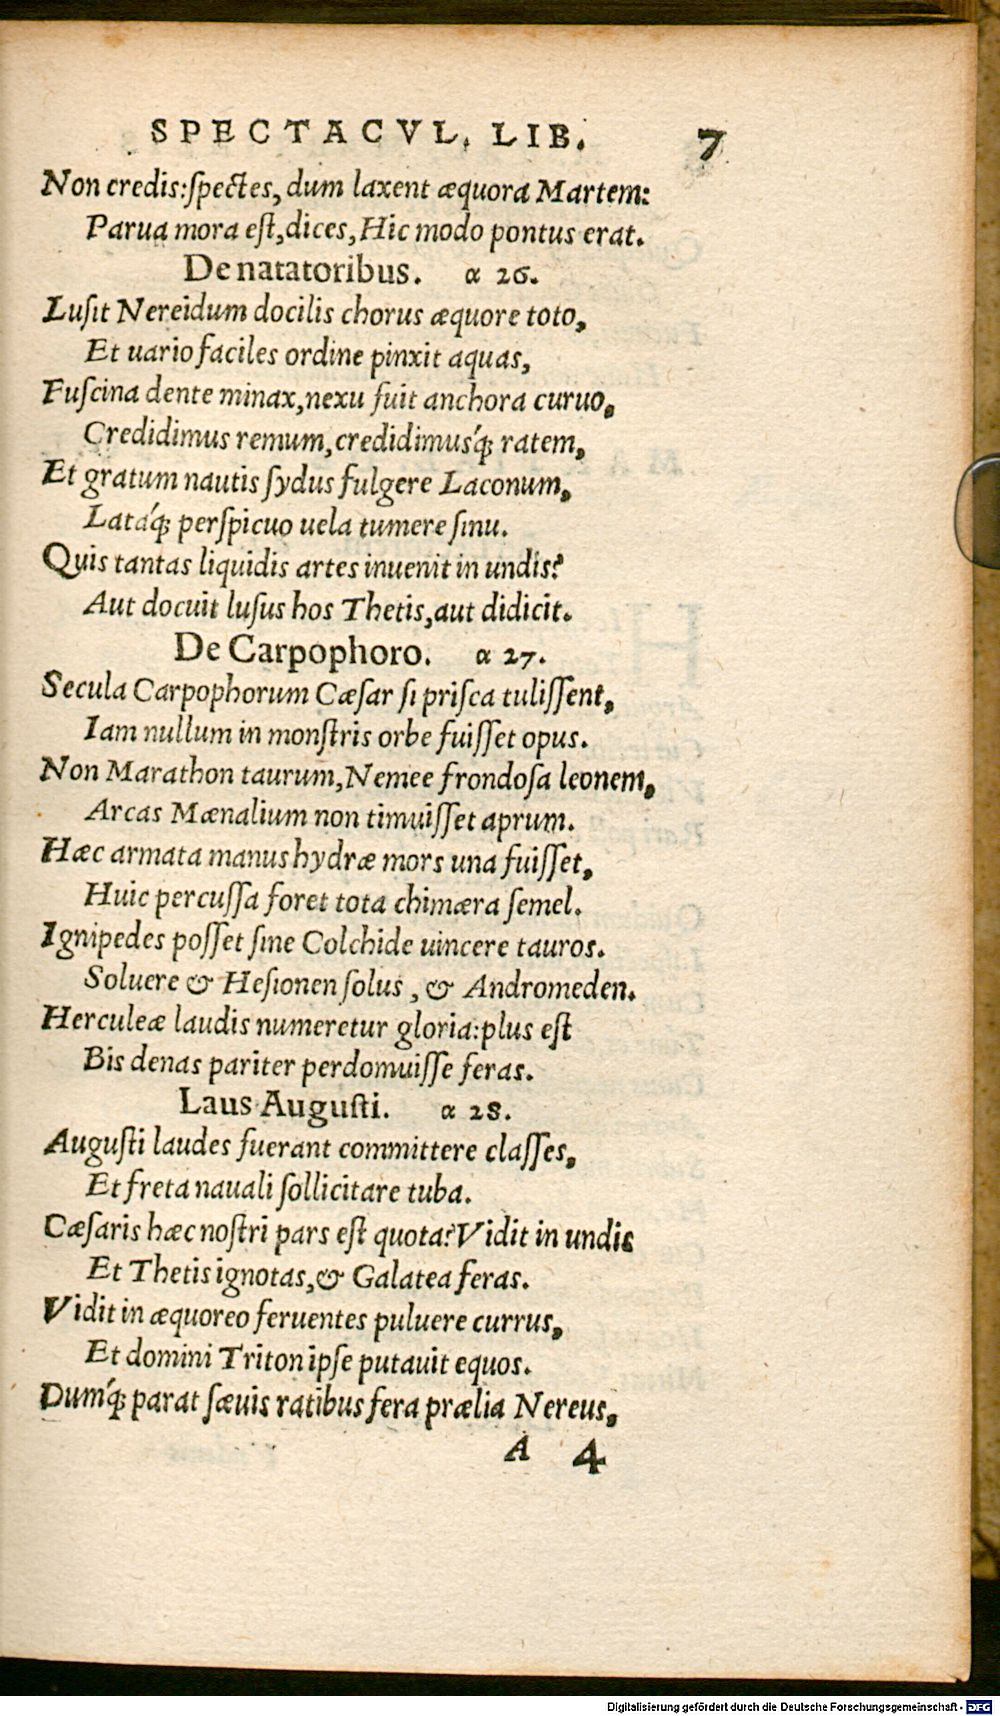 SPECTACVL. LIB. 7
Non credis:ſpectes, dum laxent æquora Martem:
Parua mora eſt,dices,Hic modo pontus erat.
De natatoribus. α 26.
Luſit Nereidum docilis chorus æquore toto,
Et uario faciles ordine pinxit aquas,
Fuſcina dente minax,nexu fuit anchora curuo,
Credidimus remum,credidimusq́; ratem,
Et gratum nautis ſydus fulgere Laconum,
Lataq́; perſpicuo uela tumere ſinu.
Quis tantas liquidis artes inuenit in undis?
Aut docuit luſus hos Thetis,aut didicit.
De Carpophoro. α 27.
Secula Carpophorum Cæſar ſi priſca tuliſſent,
Iam nullum in monſtris orbe fuiſſet opus.
Non Marathon taurum,Nemee frondoſa leonem,
Arcas Mænalium non timuiſſet aprum.
Hæc armata manus hydræ mors una fuiſſet,
Huic percuſſa foret tota chimæra ſemel.
Ignipedes poſſet ſine Colchide uincere tauros.
Soluere & Heſionen ſolus , & Andromeden.
Herculeæ laudis numeretur gloria:plus eſt
Bis denas pariter perdomuiſſe feras.
Laus Auguſti. α 28.
Auguſti laudes fuerant committere claſſes,
Et freta nauali ſollicitare tuba.
Cæſaris hæc noſtri pars eſt quota?Vidit in undis
Et Thetis ignotas,& Galatea feras.
Vidit in æquoreo feruentes puluere currus,
Et domini Triton ipſe putauit equos.
Dumq́; parat ſæuis ratibus fera prælia Nereus,
A 4
Digitalisierung gefördert durch die Deutsche Forschungsgemeinschaft - DFG